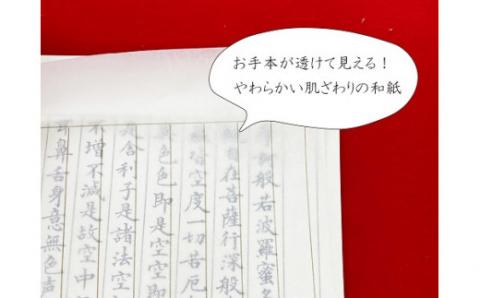 お手本が透けて見える！
やわらかい肌ざわりの和紙
般若波羅蜜多
在菩薩行深般
空度一切苦厄
色色即是空空即
是舎利子是諸法空
不増不減是故空中
耳鼻舌身意無色声